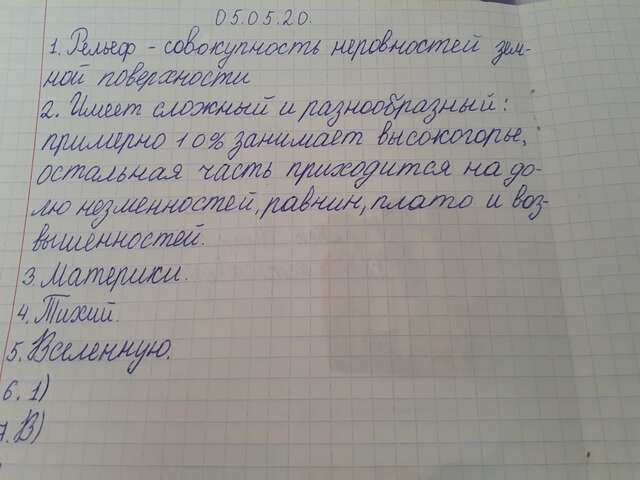 05.05.20.
1. Рельеф - совокупность неровностей зем-
ной поверхности
2. Имеет сложный и разнообразный:
примерно 10% занимает высокогорье,
остальная часть приходится на до-
лю незменностей, равнин, плато и воз-
вышенностей.
3. Материки.
4. Тихий.
5. Вселенную.
6. 1)
7. В)